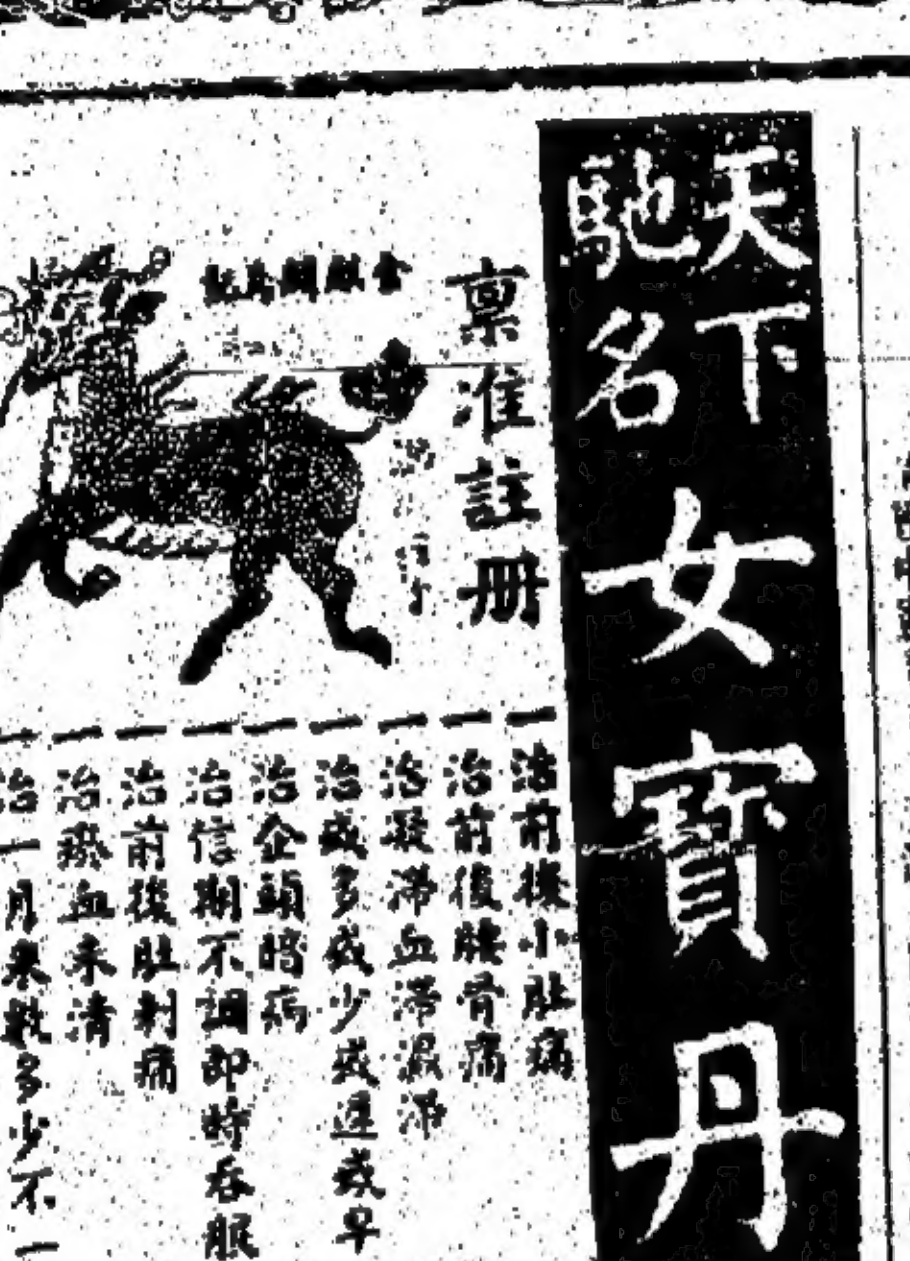 天下
馳名
女寶丹
稟准註册
一治前後小肚痛
一治前後腰骨痛
一治凝滯血滯濕滯
一治或多或少或遲或早
一治企頭暗病
一治信期不調即時吞服
一治前後肚刺痛
一治瘀血未清
一治一月來數多少不一